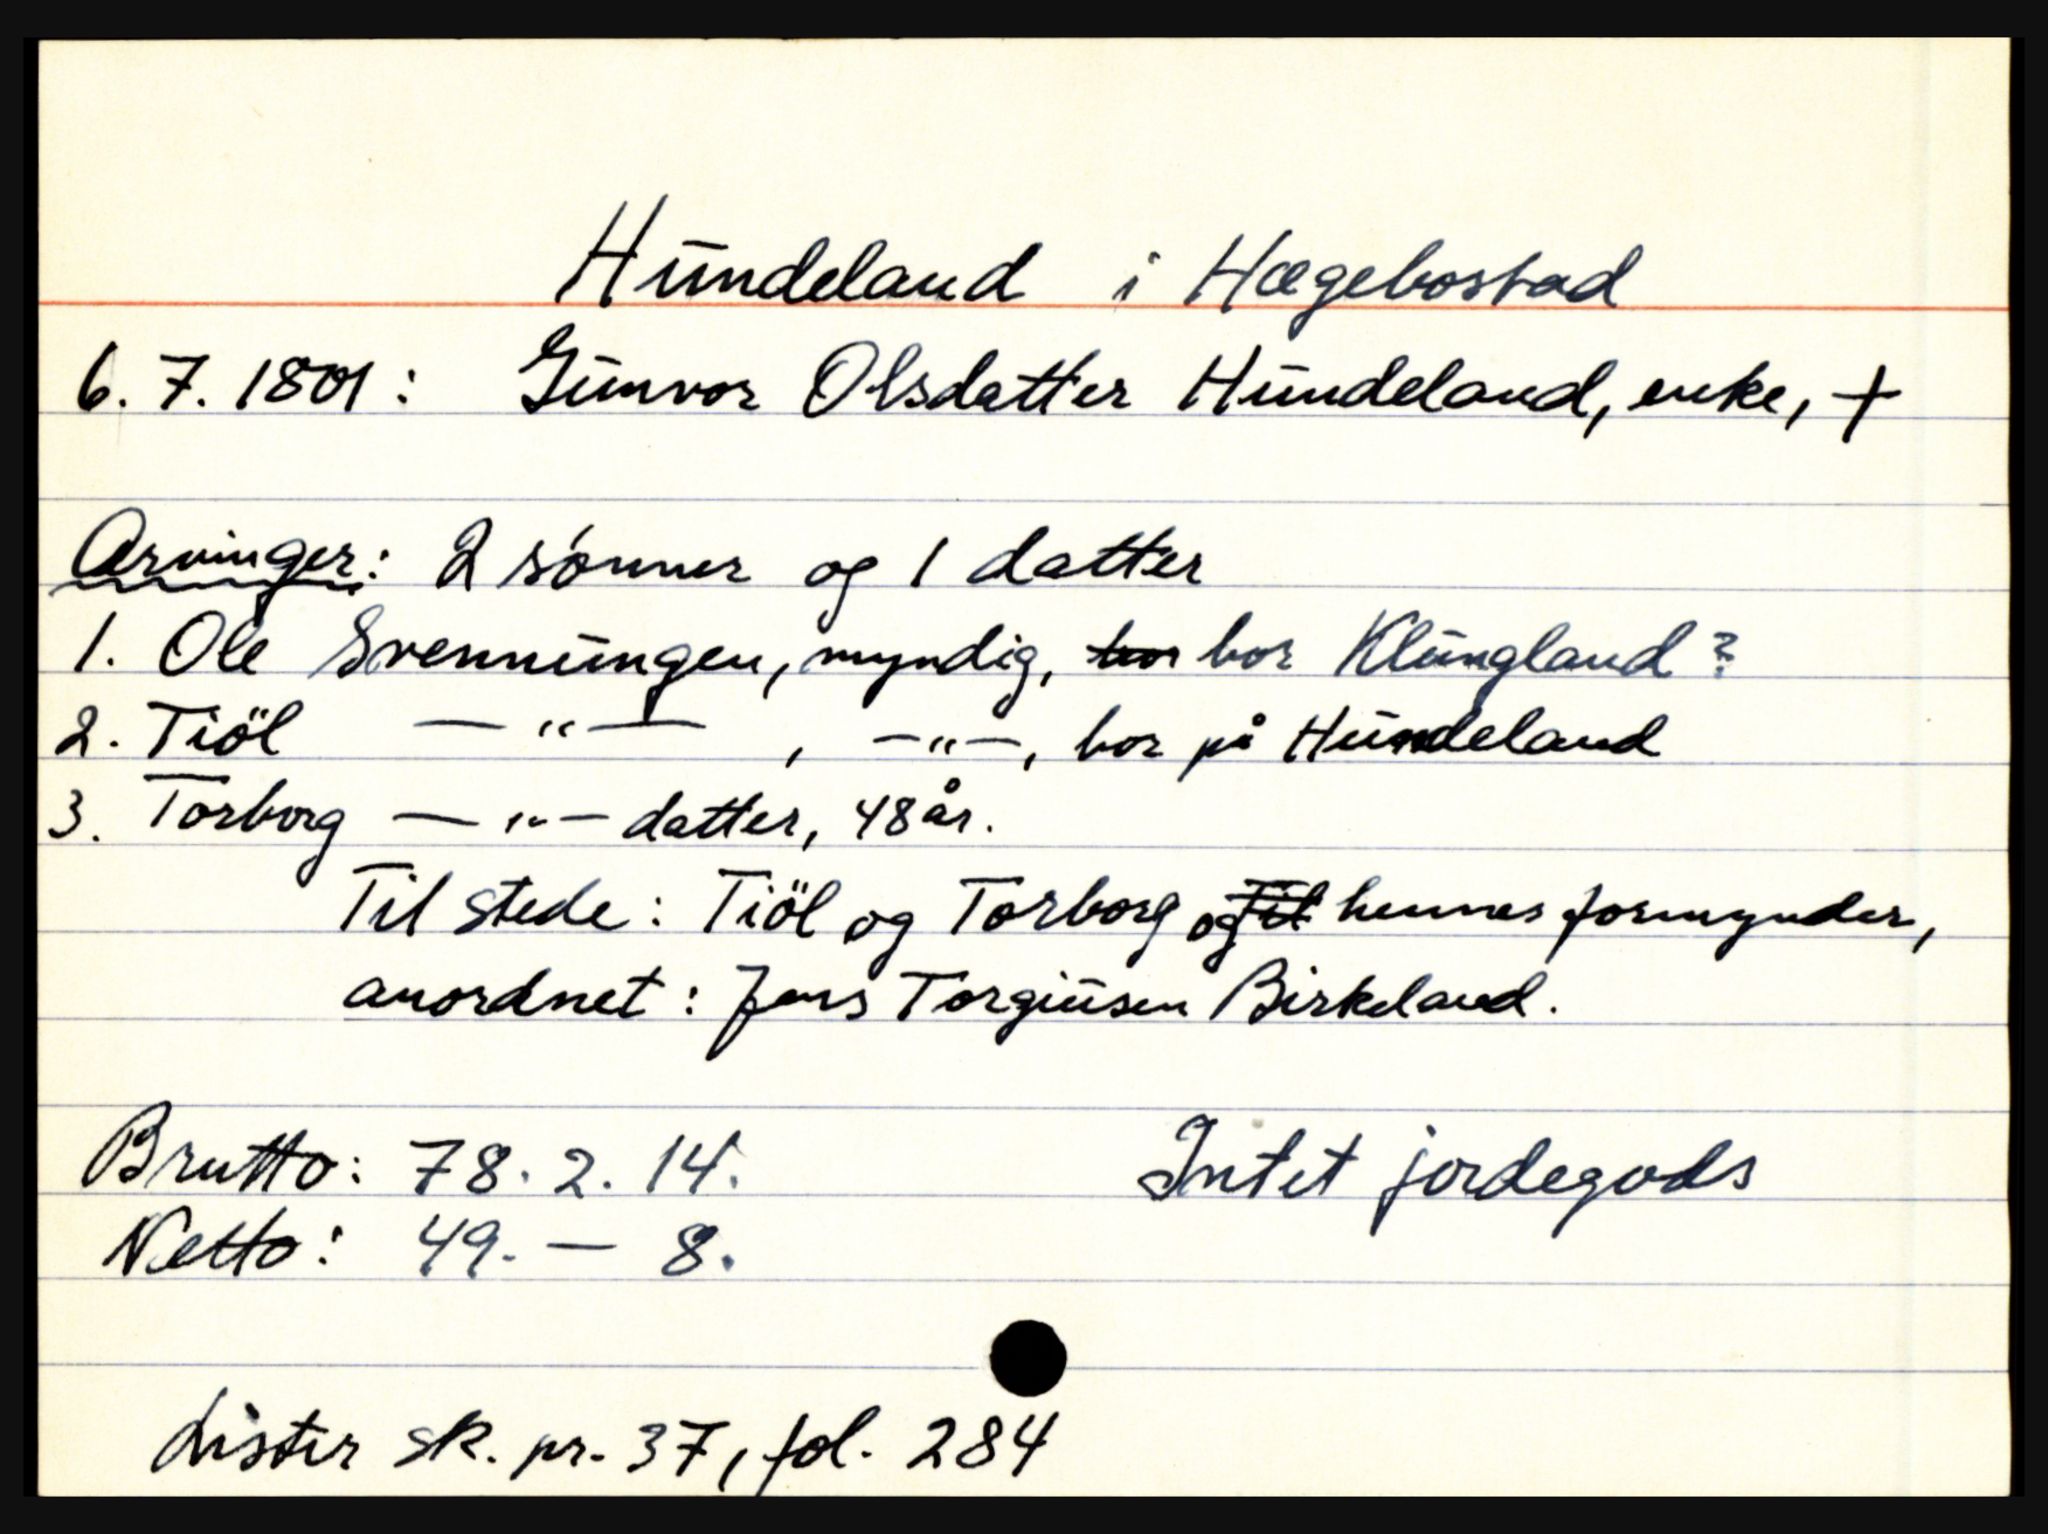 Hundeland i Hægebostad
6. 7. 1801: Gunvor Olsdatter Hundeland, enke, +
Arvinger: 2 sønner og 1 datter
1. Ole Svennungen, myndig, bor bor Klungland?
2. Tiöl — " — , — " —, bor på Hundeland
3. Torborg — " — datter, 48 år.
Til stede: Tiöl og Torborg og Til hennes formynder,
anordnet: Jens Torgiusen Birkeland.
Brutto: 78. 2. 14. Intet jordegods
Netto: 49. — 8.
Lister sk. pr. 37, fol. 284